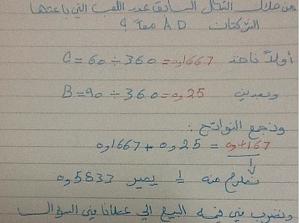 من خلال الشكل السابق عدد اللعب التي باعتها
الشركتان AD معاً ؟
أولاً ناخذ C = 60 ÷ 360 = 0,1667
وبعدين B = 90 ÷ 360 = 0,25
ونجمع النواتج :
0,1667 + 0,25 = 0,4167
نطرح منه 1 يصير 0,5833
ونضرب في قيمة البيع الي عطانا في السؤال